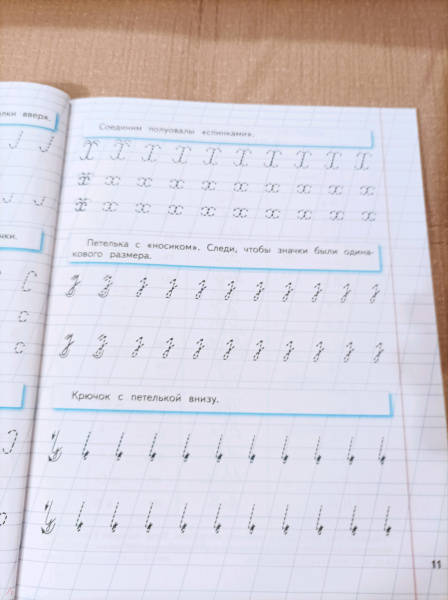 лки вверх.
чки.
Соединим полуовалы «спинками».
Петелька с «носиком». Следи, чтобы значки были одина-
кового размера.
Крючок с петелькой внизу.
11